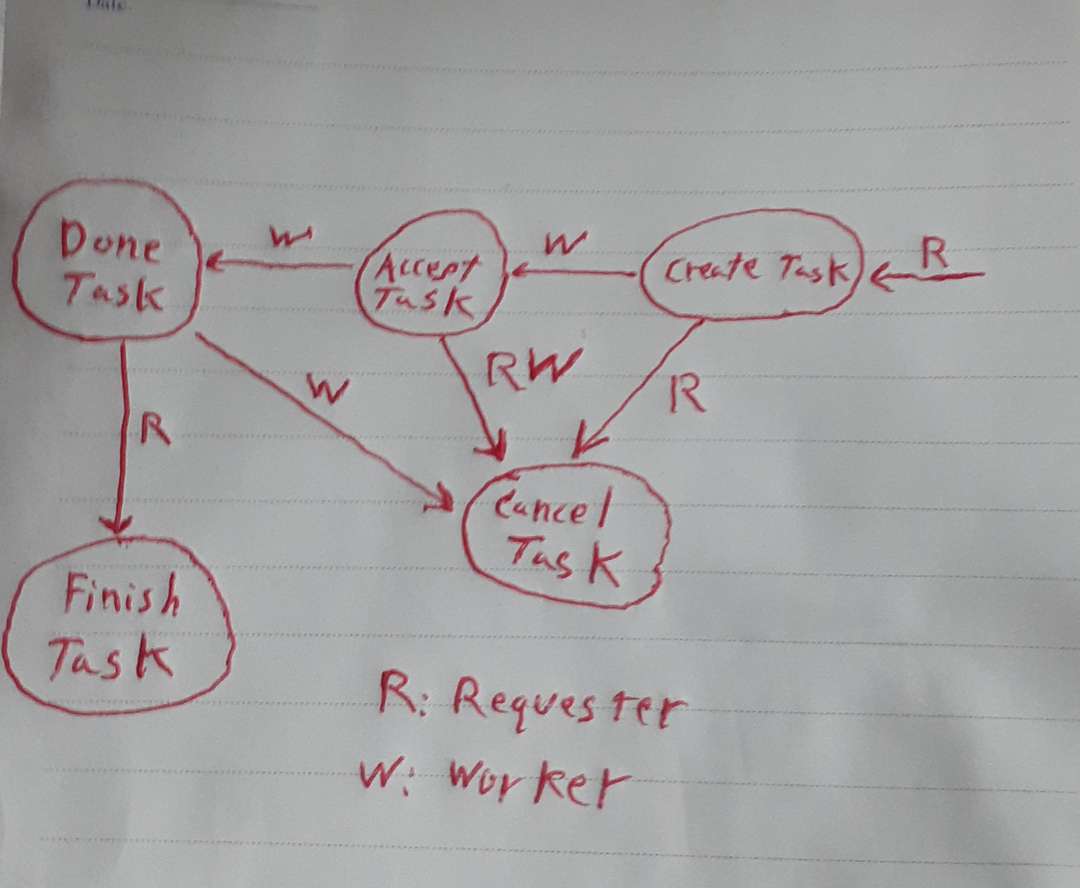 Date
R
W
W
Done
Task
Accept
Task
Create Task
RW
R
W
R
Cancel
Task
Finish
Task
R: Requester
W: Worker